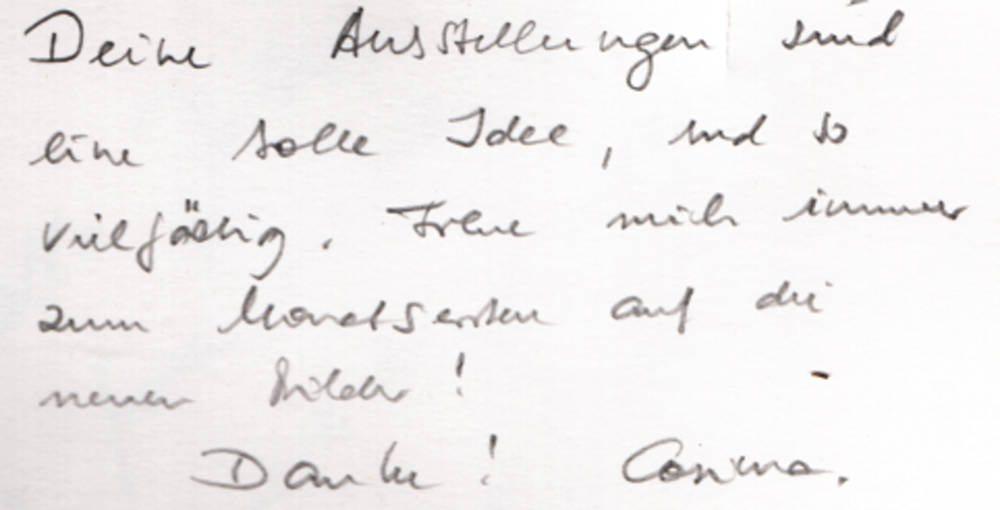 Deine Ausstellungen sind
eine tolle Idee, und so
vielfältig. Freue mich immer
zum Monatsersten auf die
neuen Bilder!
Danke! Cosima.